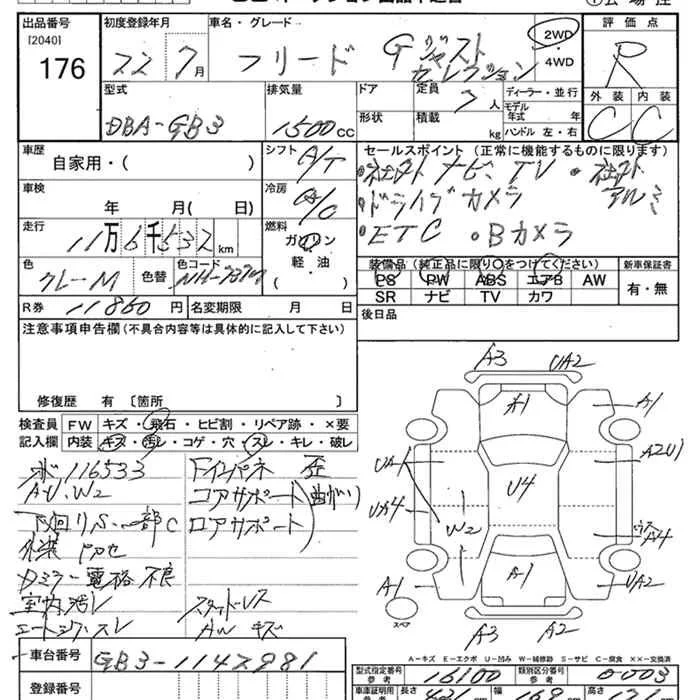 出品番号 初度登録年月 車名・グレード 評価点
[2040]
176 22 7月 フリード G ジャスト セレクション 2WD ・ 4WD R
型式 排気量 ドア 定員 ディーラー・並行 外装 内装
DBA-GB3 1500cc 7人 モデル年式 年 C C
形状 積載 kg ハンドル 左・右
車歴 シフト セールスポイント (正常に機能するものに限ります)
自家用・( ) A/T ・社外ナビ、TV ・社外アルミ
車検 冷房 ・ドライブカメラ
年 月( 日) A/C ・ETC ・Bカメラ
走行 燃料
11万6千532km ガソリン
軽・油
色 色替 色コード ( ) 装備品 (純正品に限り○をつけてください) 新車保証書
グレーM PS PW ABS エアB AW 有・無
R券 11860円 名変期限 月 日 SR ナビ TV カワ
注意事項申告欄(不具合内容等は具体的に記入して下さい) 後日品
修復歴 有 〔箇所 〕
検査員 FW キズ・飛石・ヒビ割・リペア跡・×要
記入欄 内装 キズ・汚レ・コゲ・穴・スレ・キレ・破レ
116533 歪
A・U、W2 コアサポート(曲がり)
下回りS、一部C ロアサポート
外装
Dミラー電格不良
室内汚レ スタッドレス
シートスレ AWキズ
A3 UA2
A1 A1
UA A2U1
U4
UX4 W2 A4
A1 A1 UA2
スペア A3 A2
A-キズ E-エクボ U-凹み W-補修跡 S-サビ C-腐食 XX-交換済
車台番号 GB3-1142981 型式指定番号 参考 16100 類別区分番号 参考 0003
登録番号 車庫証明用 参考 長さ 幅 168 高さ